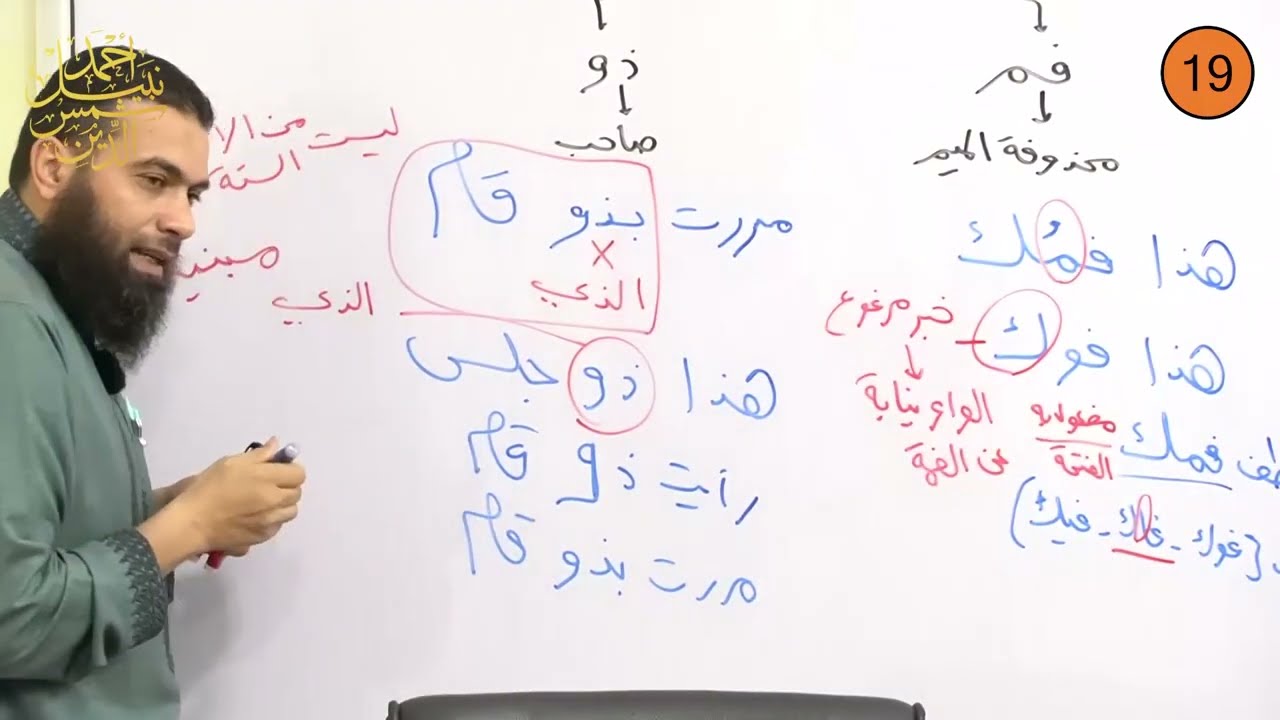 19
فم
محذوفة الميم
هذا فمُك
هذا فوك
خبر مرفوع
الواو نيابة
عن الضمة
فمك
مفعول به
الفتحة
(فوك - فاك - فيك)
ذو
صاحب
مررت بذو قام
x
الذي
هذا ذو جلس
رأيت ذو قام
مررت بذو قام
ليست من الا
الستة
الذي
أحمد
نبيل
شمس
الدين